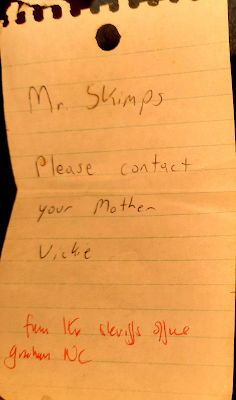 Mr. Skimps
Please contact
your Mother
Vickie
from the sheriffs office
graham NC